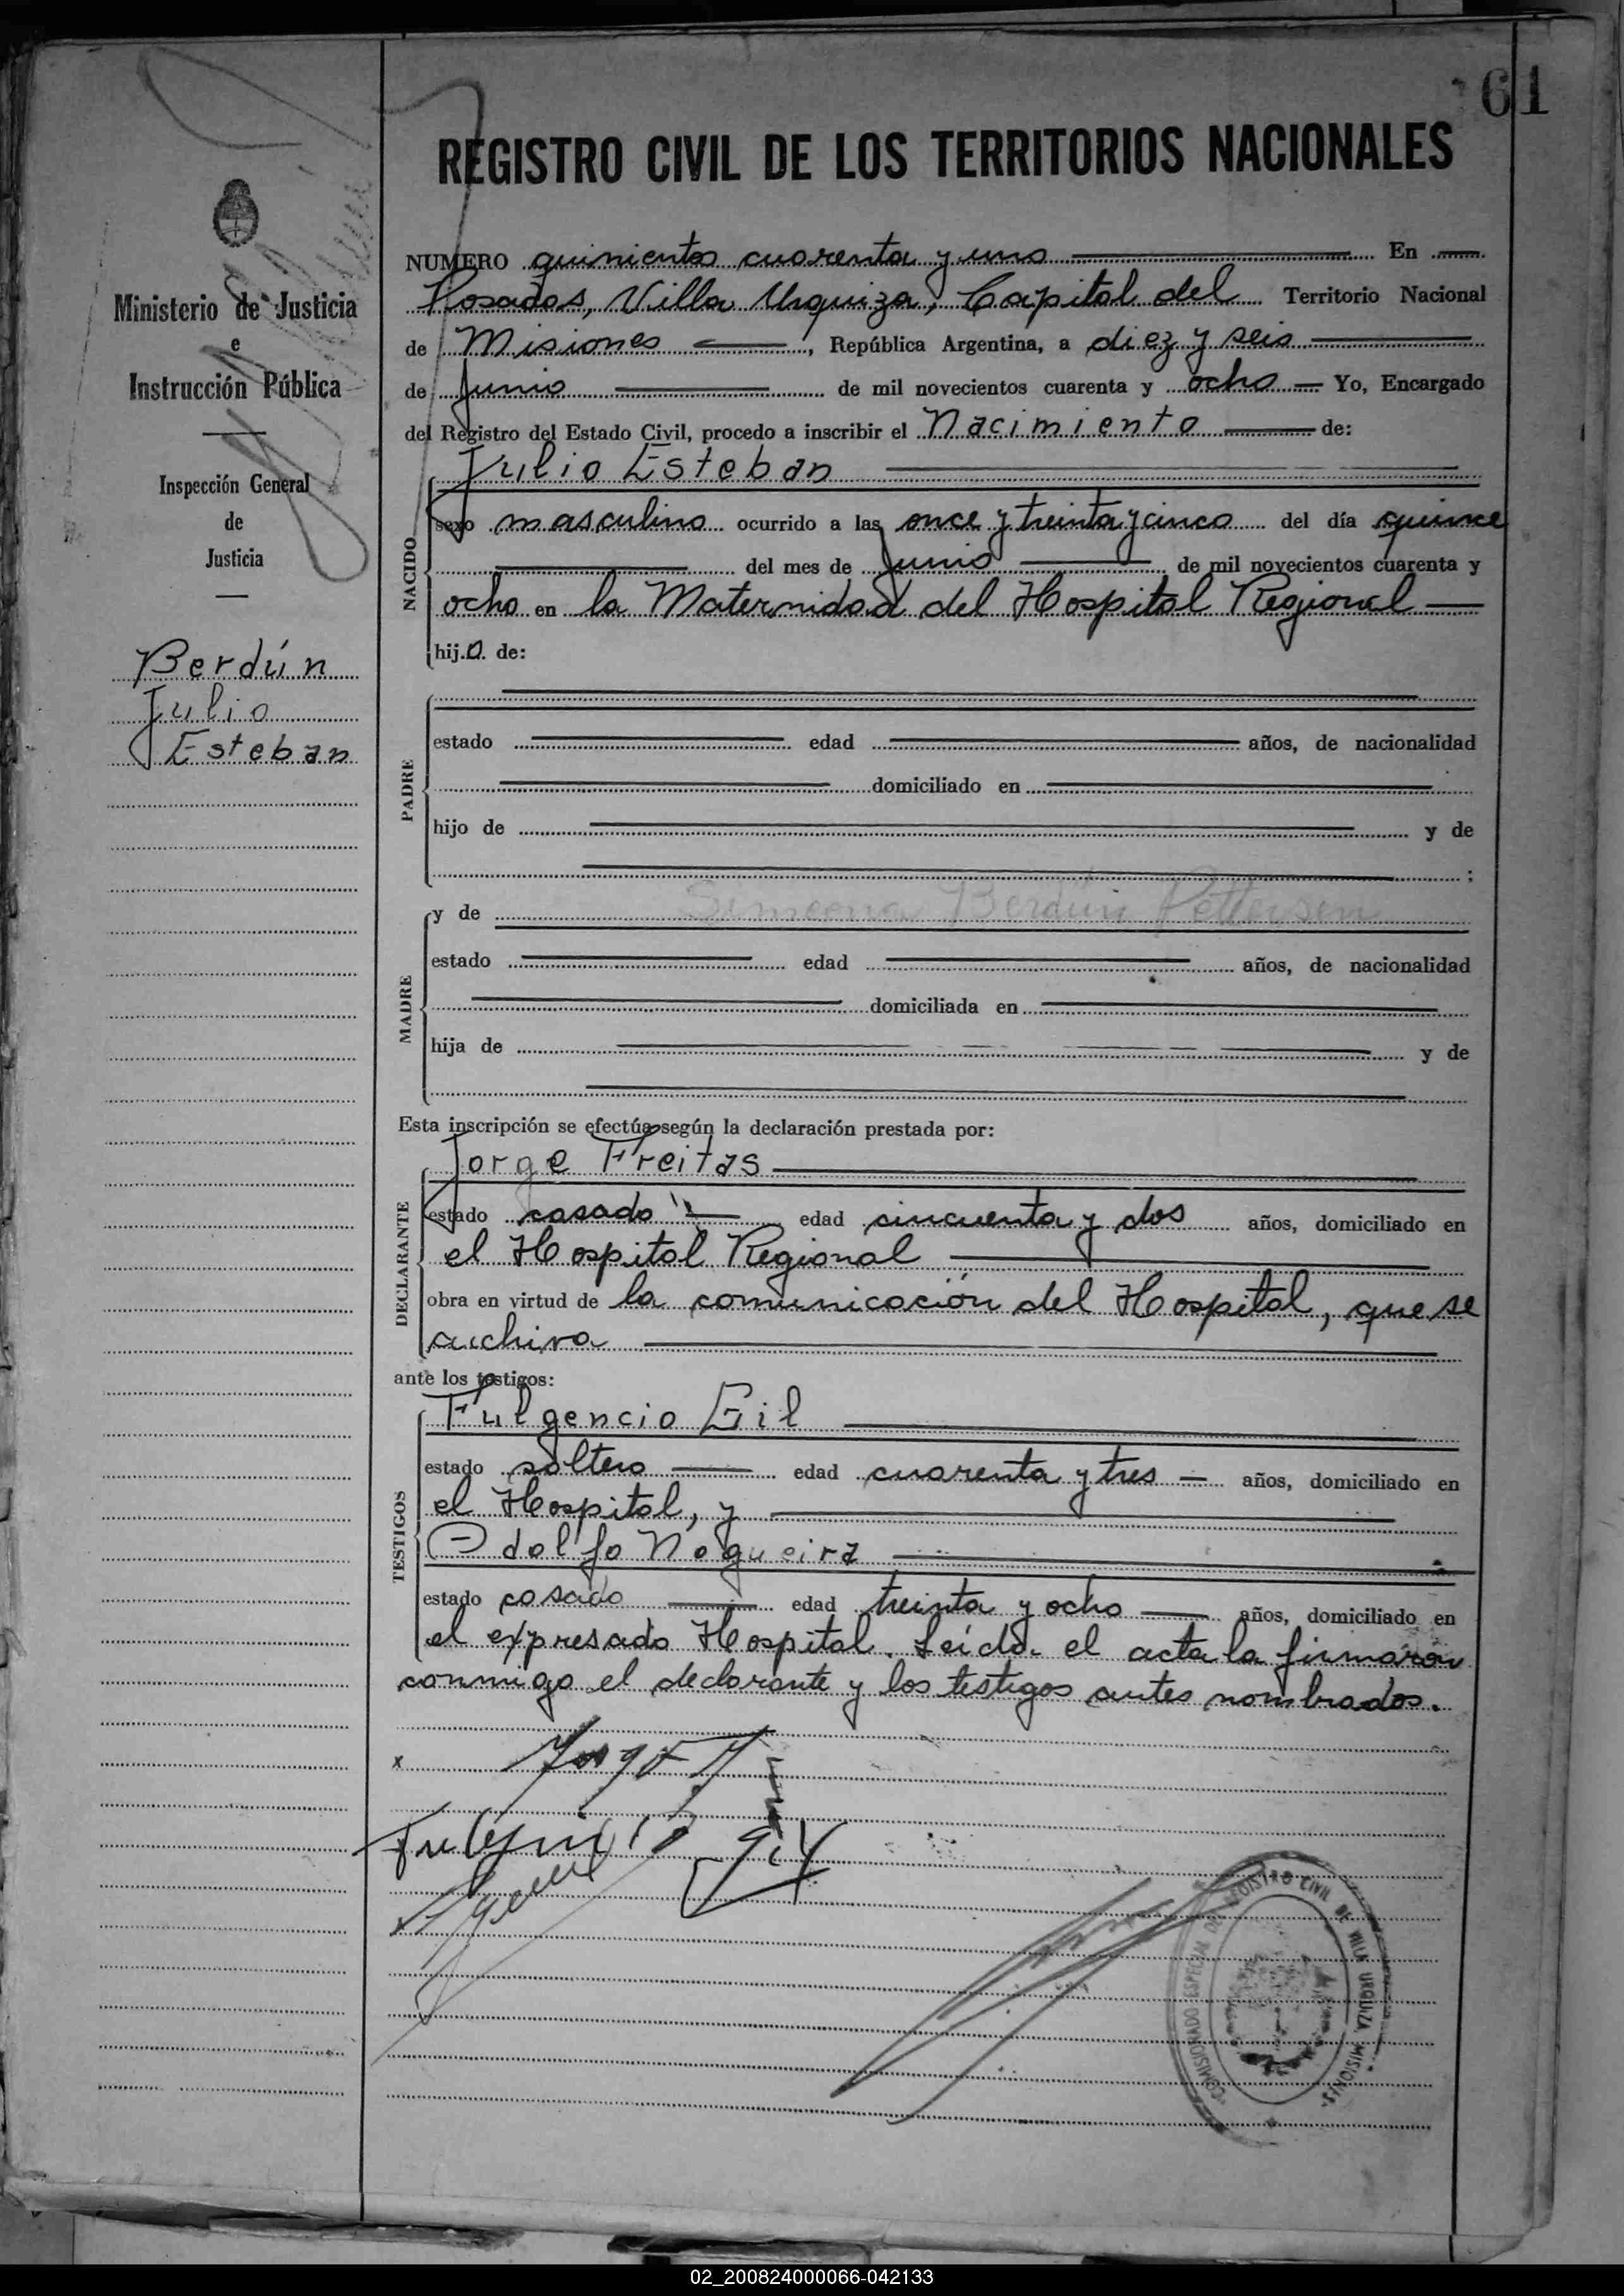 61
REGISTRO CIVIL DE LOS TERRITORIOS NACIONALES
Ministerio de Justicia
e
Instrucción Pública
Inspección General
de
Justicia
Berdún
Julio
Esteban
NUMERO quinientos cuarenta y uno En
Posadas, Villa Urquiza, Capital del Territorio Nacional
de Misiones, República Argentina, a diez y seis
de Junio de mil novecientos cuarenta y ocho Yo, Encargado
del Registro del Estado Civil, procedo a inscribir el Nacimiento de:
Julio Esteban
NACIDO
sexo masculino ocurrido a las once y treinta y cinco del día quince
del mes de Junio de mil novecientos cuarenta y
ocho en la Maternidad del Hospital Regional
hijo de:
PADRE
estado edad años, de nacionalidad
domiciliado en
hijo de y de
;
MADRE
y de Simeona Berdún
estado edad años, de nacionalidad
domiciliada en
hija de y de
Esta inscripción se efectúa según la declaración prestada por:
Jorge Freitas
DECLARANTE
estado casado edad cincuenta y dos años, domiciliado en
el Hospital Regional
obra en virtud de la comunicación del Hospital, que se
archiva
ante los testigos:
TESTIGOS
Fulgencio Gil
estado soltero edad cuarenta y tres años, domiciliado en
el Hospital, y
Adolfo Nogueira
estado casado edad treinta y ocho años, domiciliado en
el expresado Hospital. Leída el acta la firmaron
conmigo el declarante y los testigos antes nombrados.
x
COMISIONADO ESPECIAL DEL REGISTRO CIVIL DE VILLA URQUIZA, MISIONES.
02_200824000066-042133